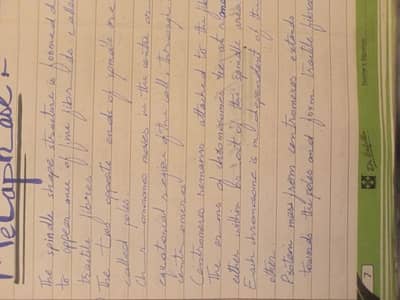 Metaphase -
The spindle shape structure is formed
to appearance of fine fibrils called
tractile fibres
The two opposite ends of spindle are
called poles
Chromosome moves in the centre or
equatorial region of the cell through
centromere
Centromere remains attached to the
The arms of chromosomes
either within or out of the spindle area
Each chromosome is independent of the
other.
Protein mass from centromeres extends
towards the poles and form tractile fibres
7